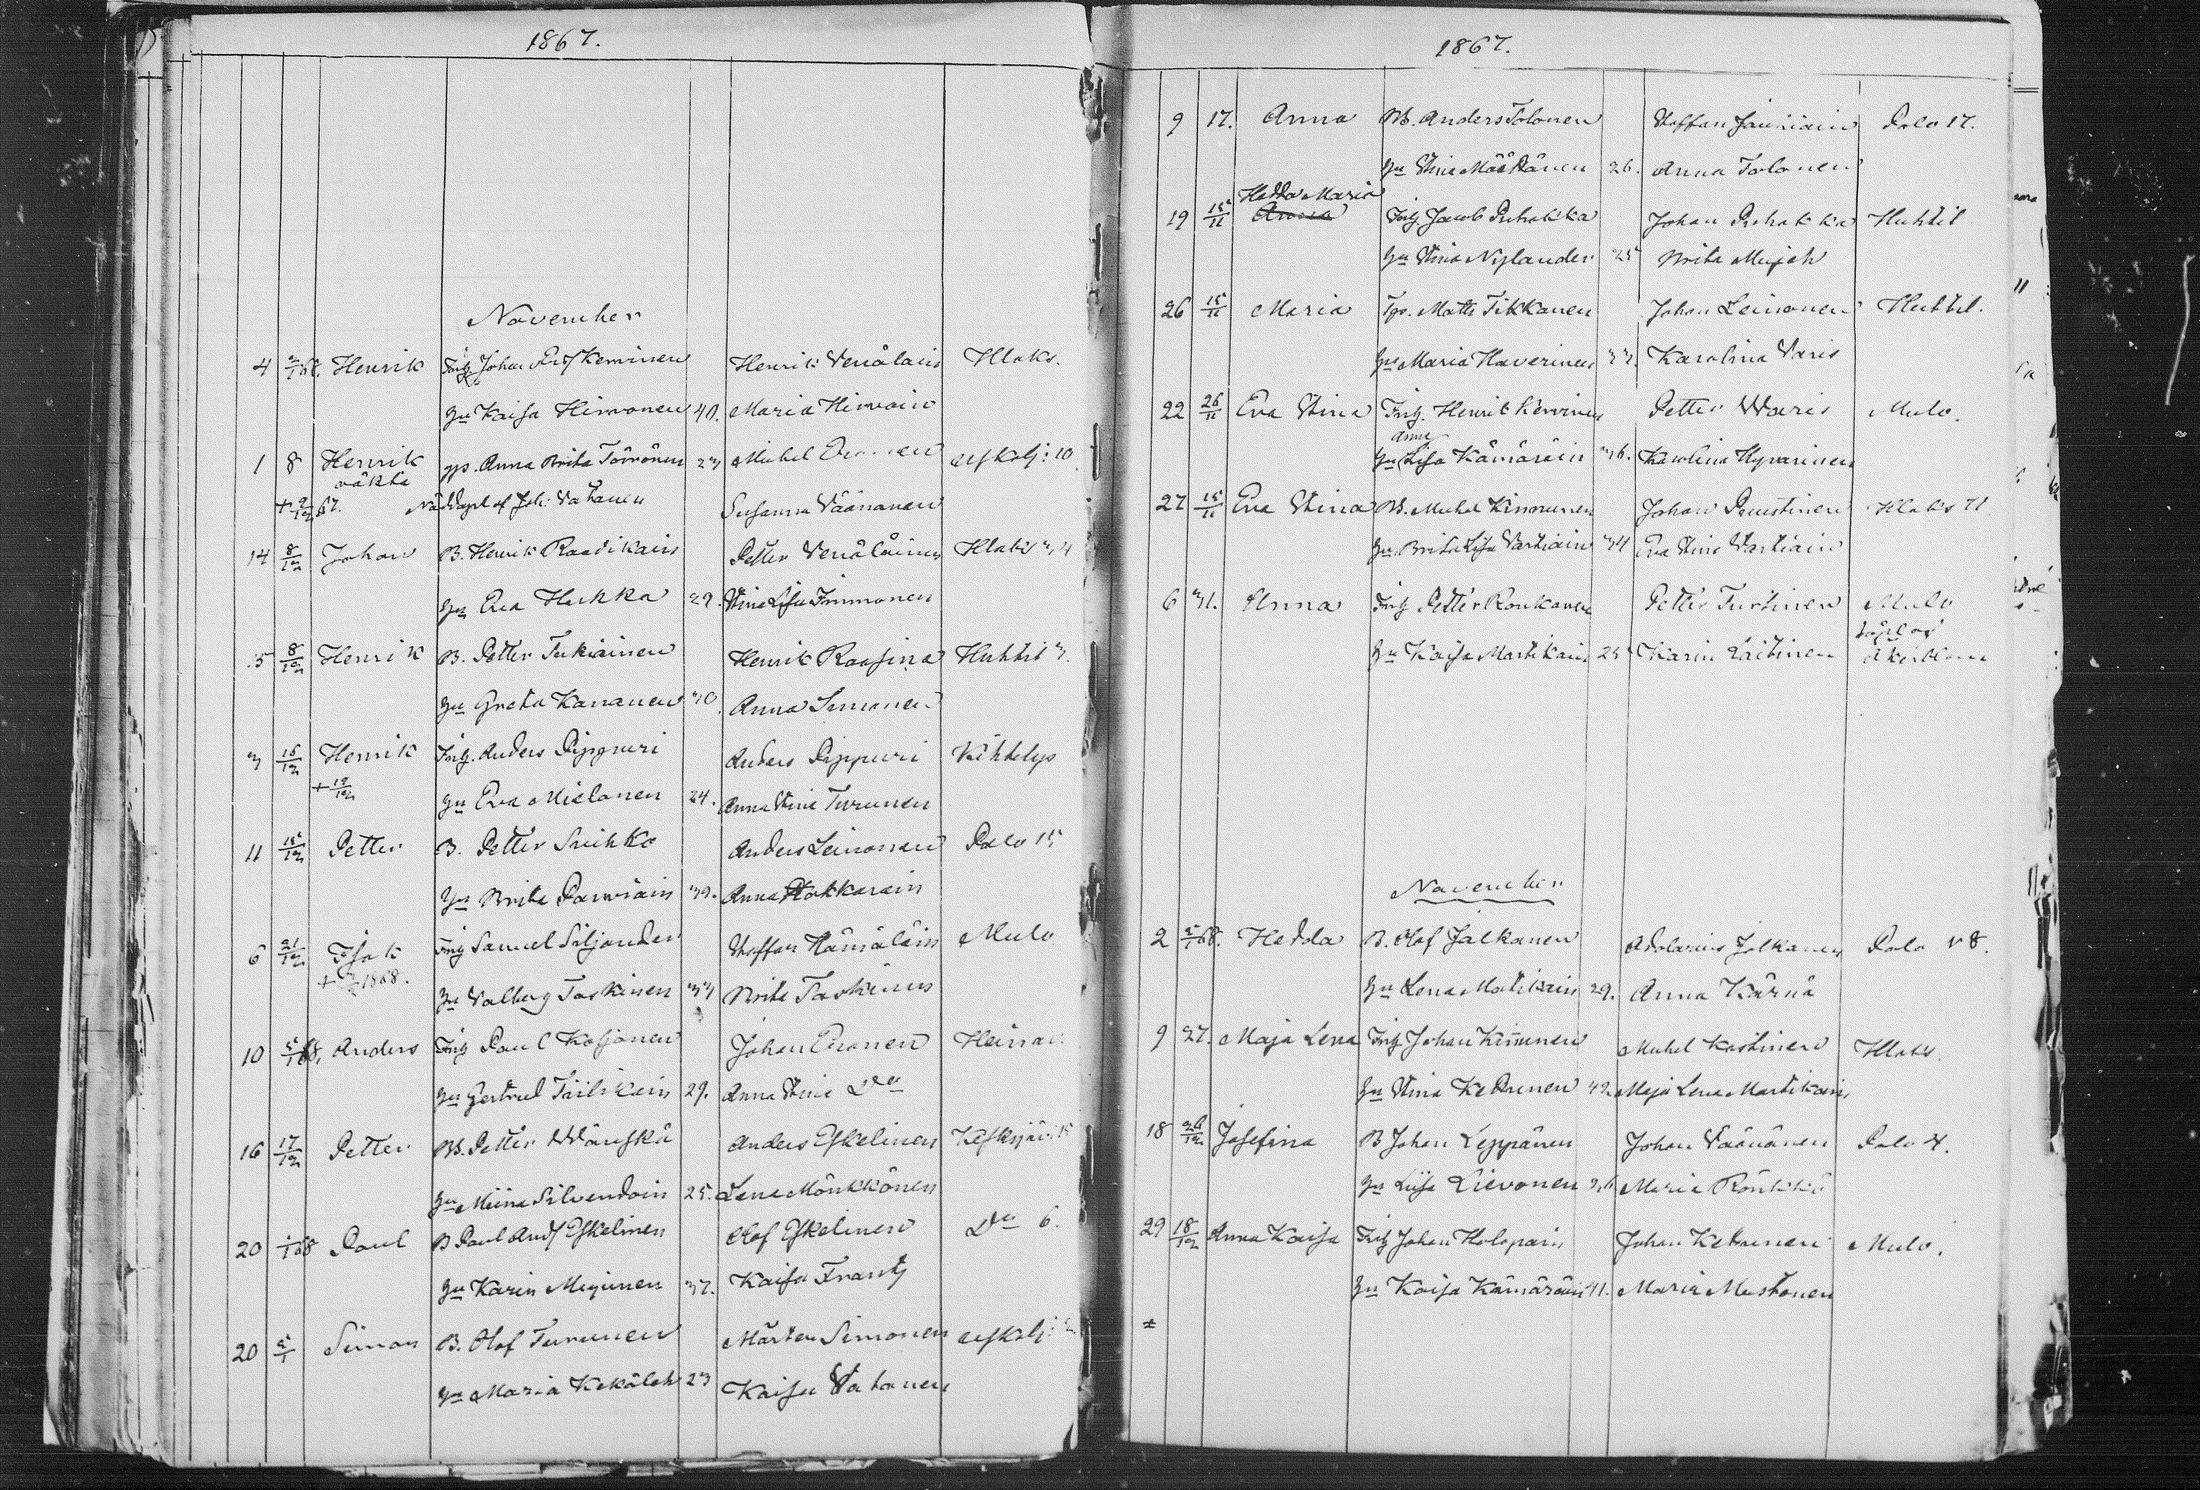 1867.
November
4 2/1 68. Henrik Inhg Johan And Kervinen Henrik Venäläin Hlaks.
Hu Kaisa Hirvonen 40. Maria Hirvoin
1 8 Henrik gps. Anna Brita Törrönen 23 Michel Eskolj: 10
oäkta
+ 9/12 67. af Joh. Vatanen Susanna Väänänen
14 8/12 Johan B. Henrik Raatikain Petter Venäläinen Hlaks 34
Hu Eva Hukka 29. Stina Lisa Immonen
15 8/12 Henrik B. Petter Tukiainen Henrik Raasina Huhtil 3.
Hu Greta Kananen 30 Anna Simonen
3 15/12 Henrik Inhg. Anders Pippuri Anders Pippuri Kihtelys
+ 19/12 Hu Eva Mielonen 24. Anna Stina Turunen
11 15/12 Petter B. Petter Suihko Anders Leinonen Palo 15
Hu Brita Parviain 39. Anna Kakkarain
6 21/12 Isak Inhg Samuel Siljander Staffan Hämäläin Mulo
+ 1868. Hu Valborg Taskinen 33 Brita Taskinen
10 5/1 68. Anders Inhg Paul Koljonen Johan Eronen Heinav:
Hu Gertrud Tiilikain 29. Anna Stina Do
16 17/12 Petter B. Petter Wänskä Anders Eskelinen Keskijäv: 15
Hu Miina Silvendoin 25. Lena Mönkkönen
20 1/1 68 Paul B Paul And Eskelinen Olof Eskelinen Do 6.
Hu Karin Mujunen 37. Kaisa Frantz
20 5/1 Simon B. Olof Turunen Mårten Simonen Eskolj:
Hu Maria Kekäleh 23 Kaisa Vatanen
1867.
9 17. Anna B. Anders Tolonen Staffan Jauhiain Palo 17.
Hu Stina Määttänen 26. Anna Tolonen
Hedda Maria
19 15/11 Anna Inhg Jacob Puhakka Johan Puhakka Huhtil
Hu Stina Nylander 25 Brita Mujeh
26 15/11 Maria Tps. Matts Tikkanen Johan Leinonen Huhtil.
Hu Maria Haverinen 33. Karolina Varis
22 26/11 Eva Stina Inhg. Henrik Kervinen Petter Waris Mulo.
Anna
Hu Lisa Kämäräin 36. Karolina Hyvärinen
27 15/11 Eva Stina B. Michel Kinnunen Johan Puustinen Hlaks 11
Hu Brita Lisa Vartiain 34 Eva Stina Vartiain
6 31. Anna Inhg Petter Ronkanen Petter Turtinen Mulo
Hu Kaisa Martikain 25 Karin Laitinen
November
2 5/1 68. Hedda B. Olof Jalkanen Adolarius Jalkanen Palo 8.
Hu Lena Matikain 29. Anna Kärnä
9 27. Maja Lena Inhg Johan Kinnunen Michel Kostinen Hlaks.
Hu Stina Ketunen 42. Maja Lena Martikain
18 26/12 Josefina B Johan Leppänen Johan Väänänen Palo 4.
Hu Liisa Lievonen 36 Maria Rönkkö
29 18/12 Anna Kaisa Inhg Johan Holopain Johan Ketunen Mulo.
Hu Kaisa Kämäräin 41. Maria Mustonen